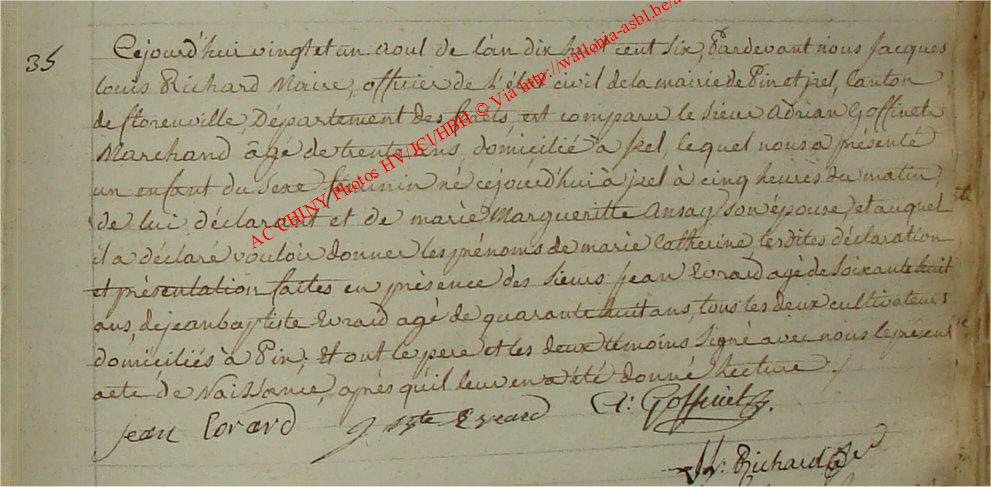 35
Cejourd'hui vingt et un aout de l'an dix huit cent six, Pardevant nous Jacques
Louis Richard Maire, officier de l'état civil de la mairie de Pin et izel, Canton
de florenville, Département des forets, est comparu le sieur Adrian Goffinet
Marchand âgé de trente ans, domicilié à izel, lequel nous a présenté
un enfant du sexe feminin né cejourd'hui à izel à cinq heures du matin,
de lui déclarant et de marie Margueritte Ansay son épouse, et auquel
il a déclaré vouloir donner les prénoms de marie Catherine, lesdites déclaration
et présentation faites en présence des sieurs jean Evrard agé de soixante huit
ans, de jean baptiste Evrard agé de quarante huit ans, tous les deux cultivateurs
domiciliés à Pin. Et ont le pere et les deux témoins signé avec nous le présent
acte de Naissance, après qu'il leur en a été donné lecture.
jean Evrard J. Bte Evrard A: Goffinet
Richard
AC CHINY Photos HV/JCl/HBH © Via http://wallonia-asbl.be/a